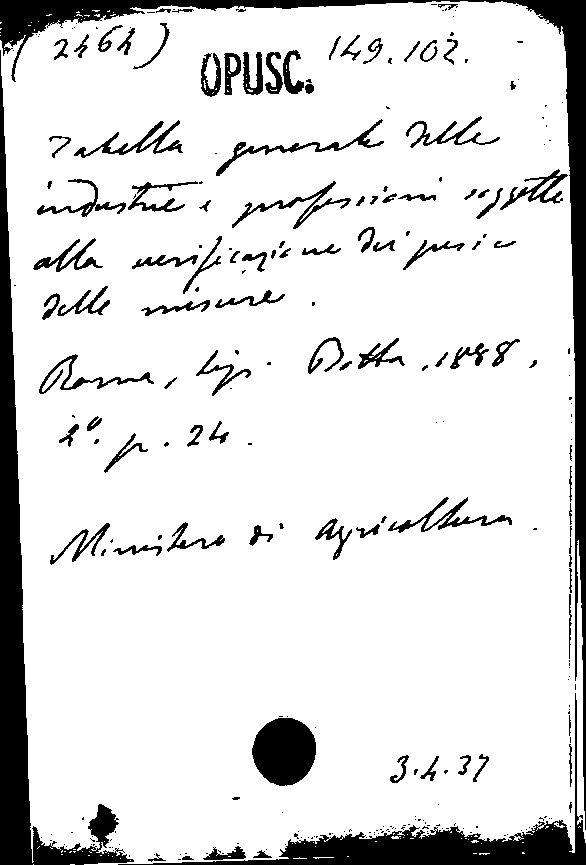 (2464) OPUSC. 149.102.
Tabella generale delle
industrie e professioni soggette
alla verificazione dei pesi e
delle misure.
Roma, tip. Botta, 1888,
2°. p. 24.
Ministero di Agricoltura.
3.4.37